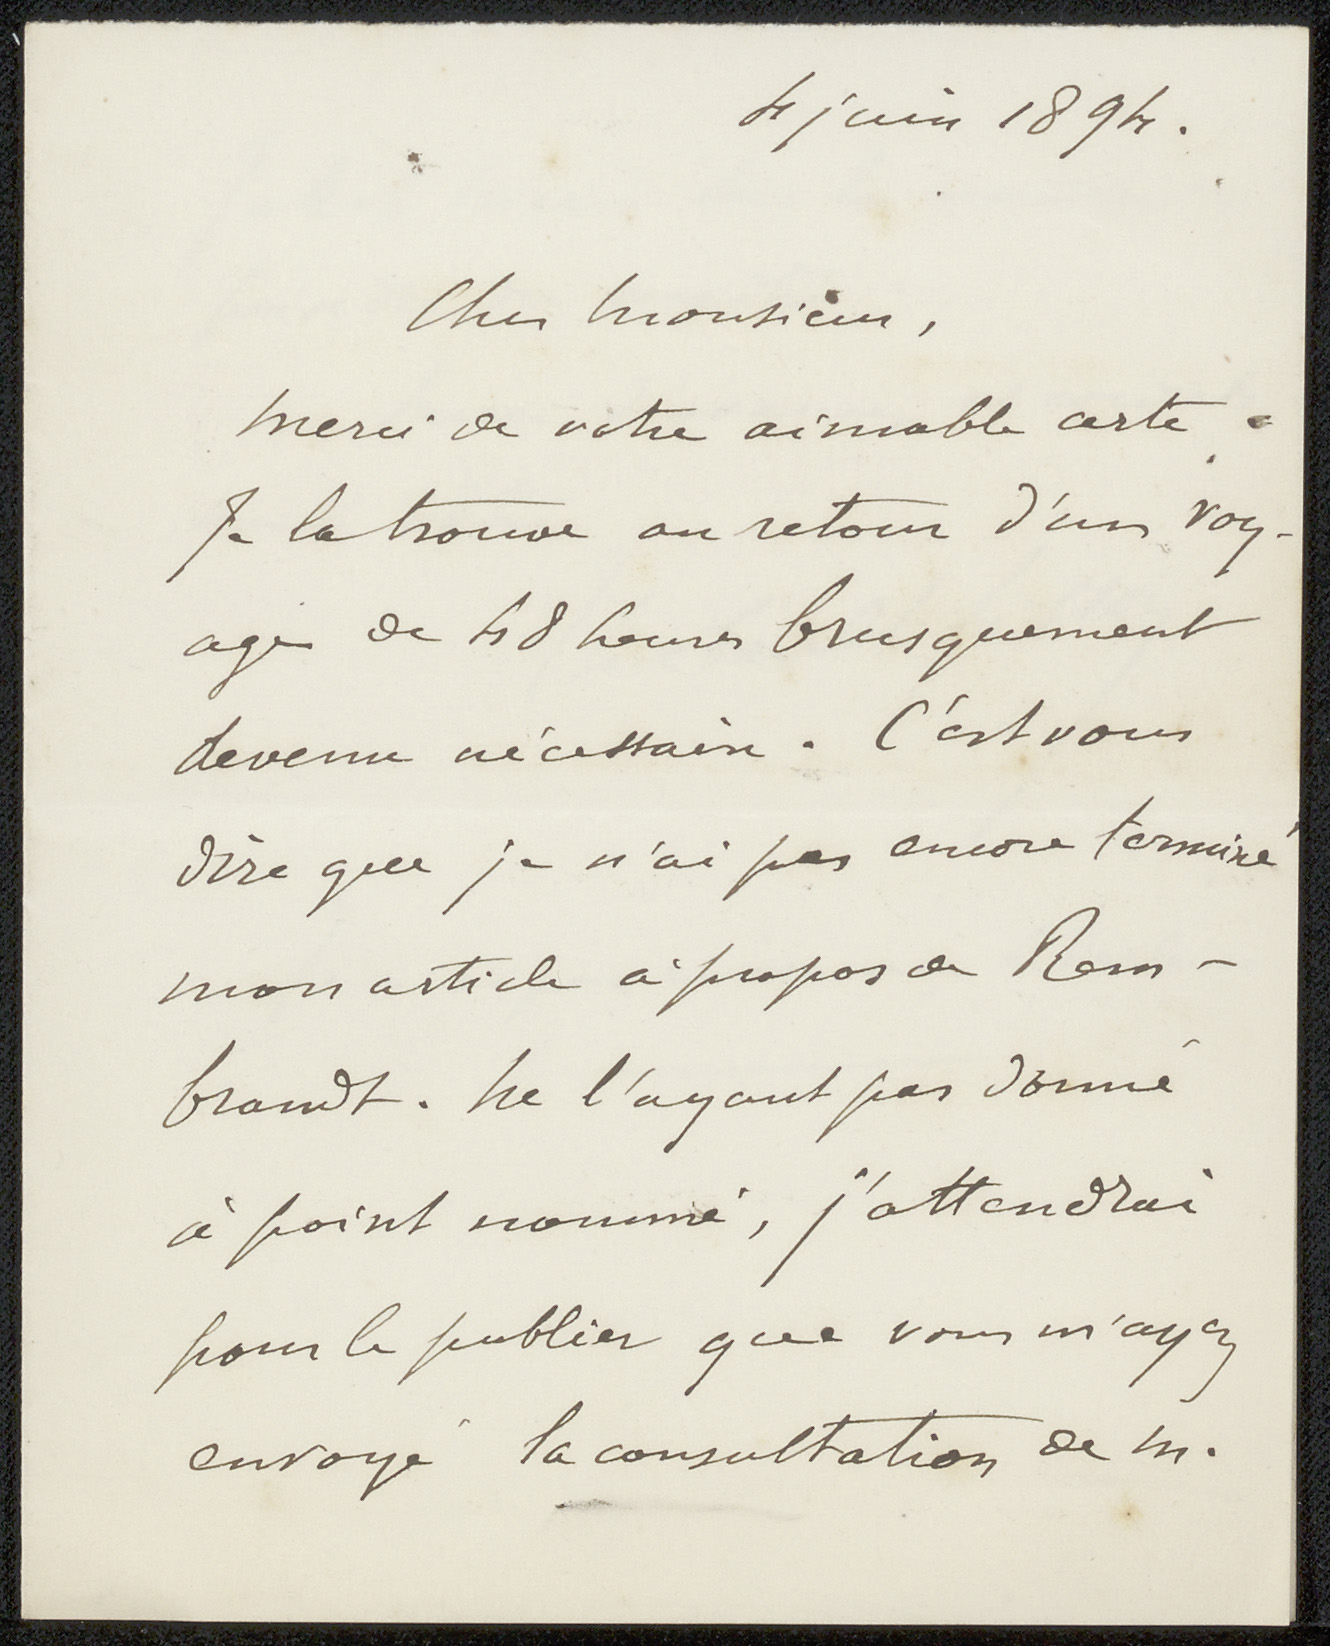 4 juin 1894.
Cher Monsieur,
Merci de votre aimable carte.
Je la trouve au retour d'un voy-
age de 48 heures brusquement
devenu nécessaire. C'est vous
dire que je n'ai pas encore terminé
mon article à propos de Rem-
brandt. Ne l'ayant pas donné
à point nommé, j'attendrai
pour le publier que vous m'ayez
envoyé la consultation de M.